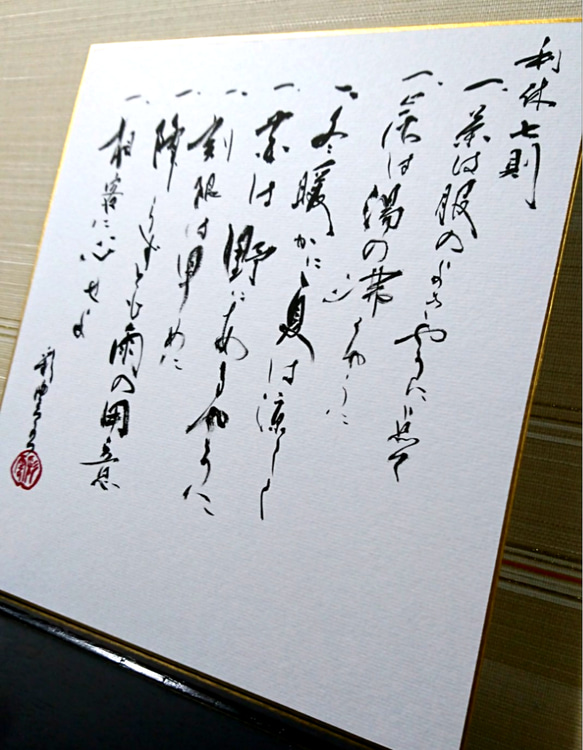 利休七則
一、茶は服のよきやうに点て
一、炭は湯の沸くやうに
一、冬は暖かに夏は涼しく
一、花は野にあるやうに
一、刻限は早めに
一、降らずとも雨の用意
一、相客に心せよ